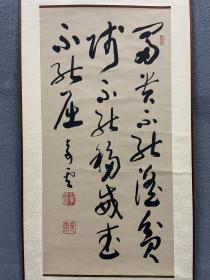 富贵不能淫贫
贱不能移威武
不能屈